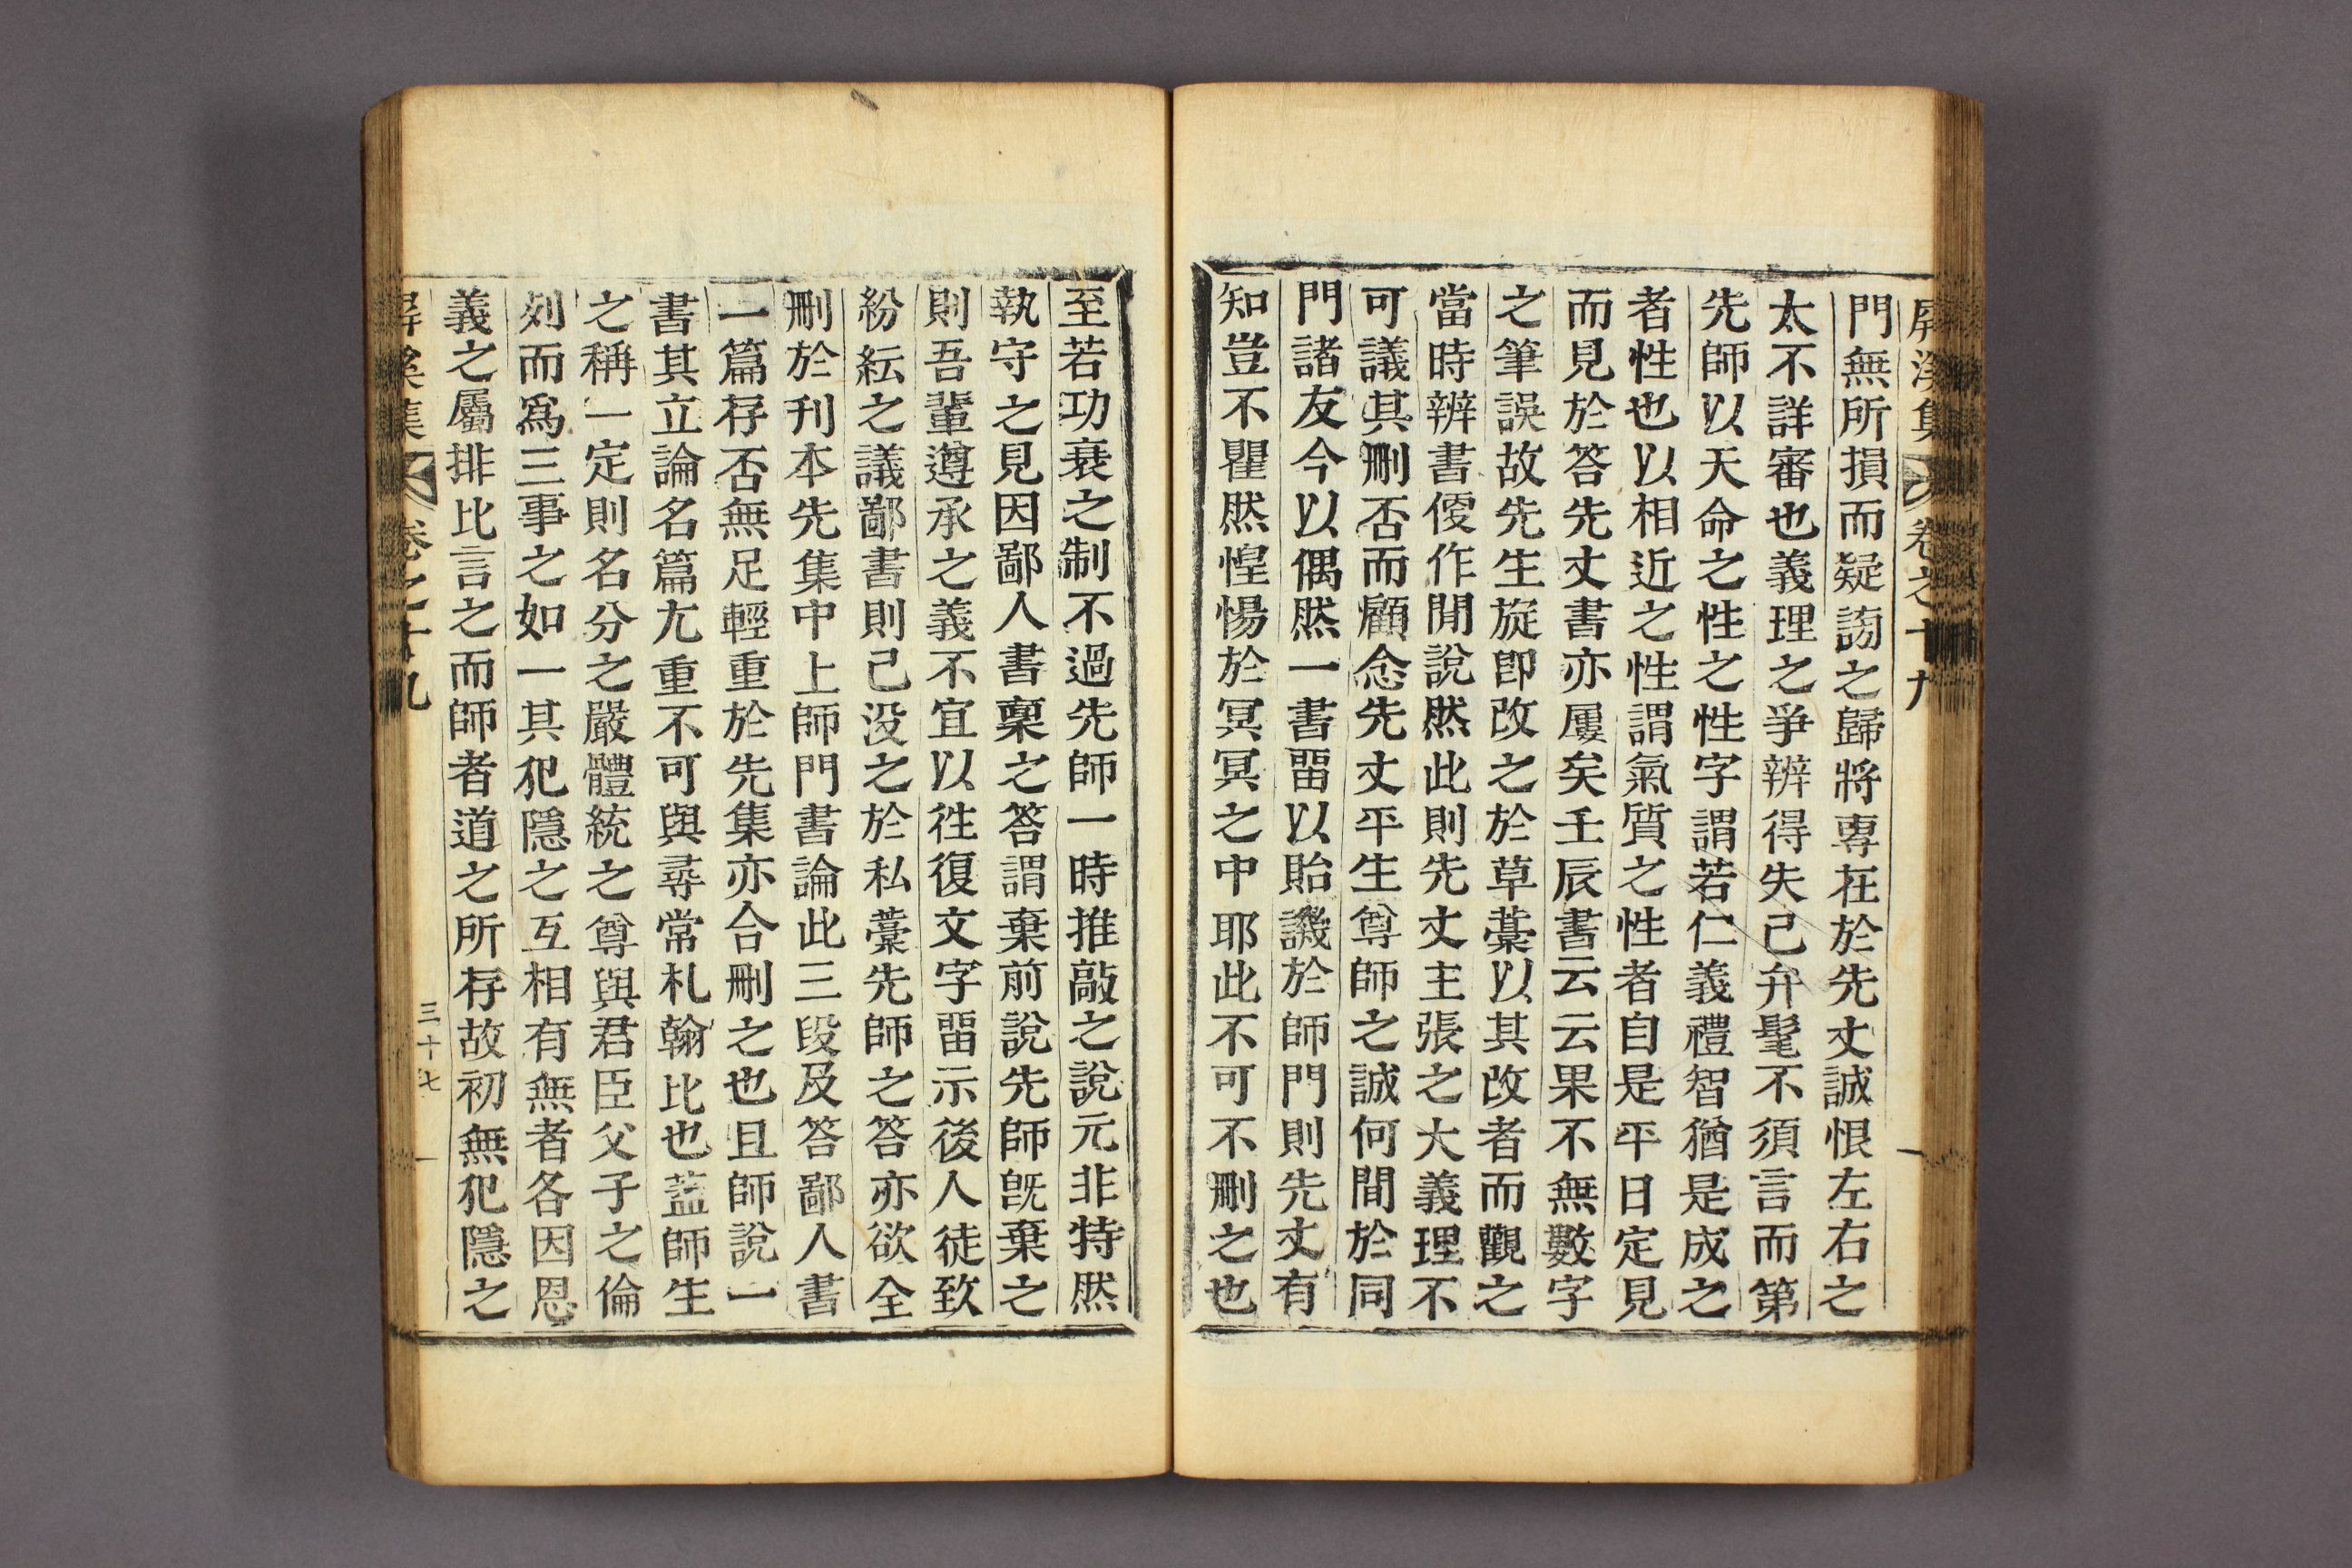 屏溪集 卷之十九
門無所損而疑謗之歸將專在於先丈誠恨左右之
太不詳審也義理之爭辨得失己弁髦不須言而第
先師以天命之性之性字謂若仁義禮智猶是成之
者性也以相近之性謂氣質之性者自是平日定見
而見於答先丈書亦屢矣壬辰書云云果不無數字
之筆誤故先生旋卽改之於草藁以其改者而觀之
當時辨書便作閒說然此則先丈主張之大義理不
可議其刪否而顧念先丈平生尊師之誠何間於同
門諸友今以偶然一書留以貽譏於師門則先丈有
知豈不瞿然惶惕於冥冥之中耶此不可不刪之也
至若功衰之制不過先師一時推敲之說元非特然
執守之見因鄙人書稟之答謂棄前說先師旣棄之
則吾輩遵承之義不宜以徃復文字留示後人徒致
紛紜之議鄙書則己没之於私藁先師之答亦欲全
刪於刊本先集中上師門書論此三段及答鄙人書
一篇存否無足輕重於先集亦合刪之也且師說一
書其立論名篇尤重不可與尋常札翰比也蓋師生
之稱一定則名分之嚴體統之尊與君臣父子之倫
列而爲三事之如一其犯隱之互相有無者各因恩
義之屬排比言之而師者道之所存故初無犯隱之
屏溪集 卷之十九 三十七